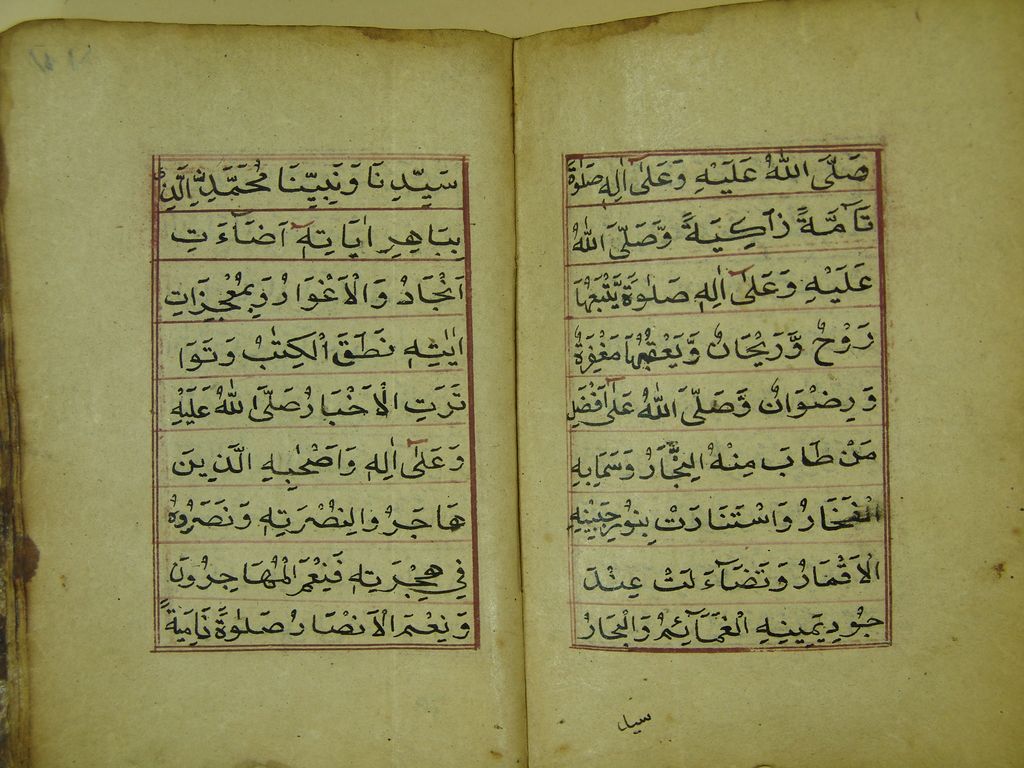 صَلَّى اللهُ عَلَيْهِ وَعَلٰى اٰلِهٖ صَلٰوةً
تَآمَّةً زَاكِيَةً وَّصَلَّى اللهُ
عَلَيْهِ وَعَلٰى اٰلِهٖ صَلٰوةً يَّتْبَعُهَا
رَوْحٌ وَّرَيْحَانٌ وَّيَعْقِبُهَا مَغْفِرَةٌ
وَّرِضْوَانٌ وَّصَلَّى اللهُ عَلٰى اَفْضَلِ
مَنْ طَابَ مِنْهُ النِّجَّارُ وَسَمَا بِهِ
الْفَخَارُ وَاسْتَنَارَتْ بِنُوْرِ جَبِيْنِهِ
الْاَقْمَارُ وَتَضَآءَلَتْ عِنْدَ
جُوْدِ يَمِيْنِهِ الْغَمَآئِمُ وَالْبِحَارُ
سيد
سَيِّدِنَا وَنَبِيِّنَا مُحَمَّدِ ۨالَّذِيْ
بِبَاهِرِ اٰيَاتِهٖ اَضَآءَتِ
اَنْجَادُ وَالْاَغْوَارُ وَبِمُعْجِزَاتِ
اٰيٰتِهٖ نَطَقَ الْكِتٰبُ وَتَوَا
تَرَتِ الْاَخْبَارُ صَلَّى اللهُ عَلَيْهِ
وَعَلٰى اٰلِهٖ وَاَصْحٰبِهِ الَّذِيْنَ
هَاجَرُوا لِنُصْرَتِهٖ وَنَصَرُوْهُ
فِيْ هِجْرَتِهٖ فَنِعْمَ الْمُهَاجِرُوْنَ
وَنِعْمَ الْاَنْصَارُ صَلٰوةً نَامِيَةً